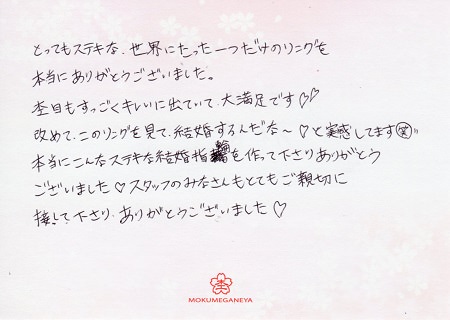 とってもステキな、世界にたった一つだけのリングを
本当にありがとうございました。
杢目もすっごくキレイに出ていて、大満足です♡♡
改めて、このリングを見て、結婚するんだな〜♡と実感してます㊫
本当にこんなステキな結婚指輪を作って下さりありがとう
ございました♡スタッフのみなさんもとてもご親切に
接して下さり、ありがとうございました♡
MOKUMEGANEYA